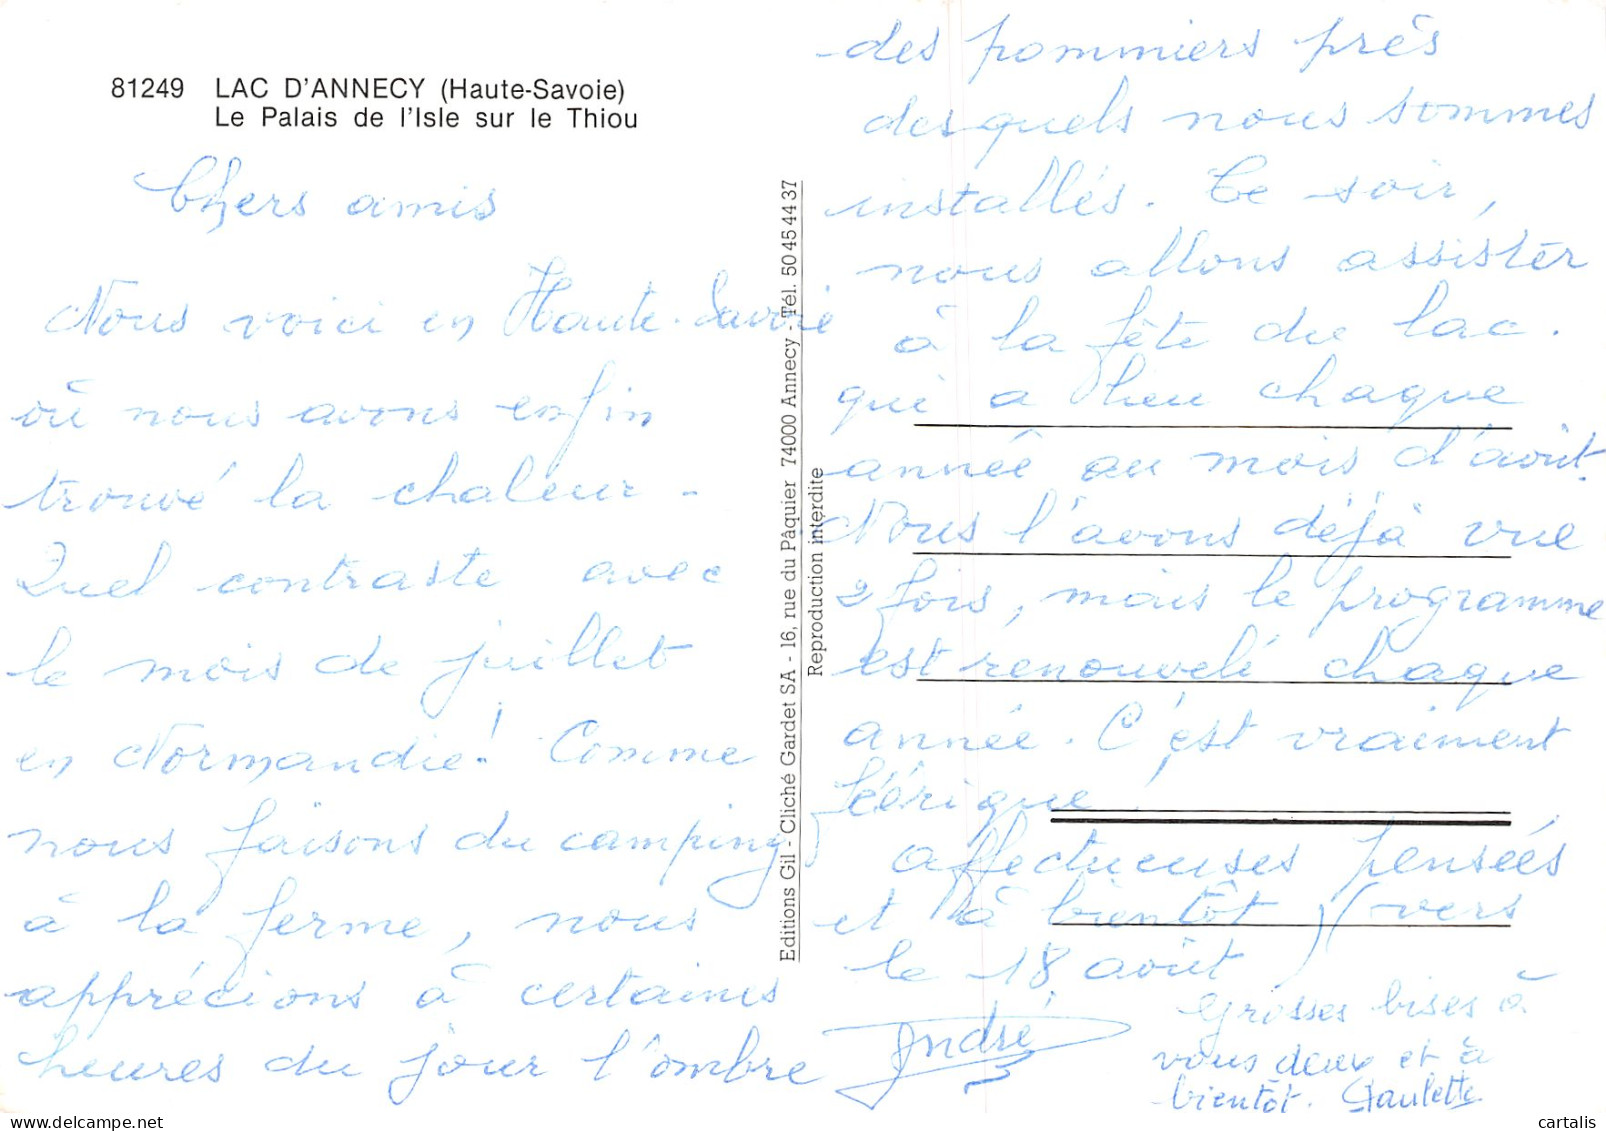 81249 LAC D'ANNECY (Haute-Savoie)
Le Palais de l'Isle sur le Thiou
Chers amis
Nous voici en Haute-Savoie
où nous avons enfin
trouvé la chaleur -
Quel contraste avec
le mois de juillet
en Normandie! Comme
nous faisons du camping
à la ferme, nous
apprécions à certaines
heures du jour l'ombre
Editions Gil - Cliché Gardet SA - 16, rue du Pâquier 74000 Annecy - Tél. 50 45 44 37
Reproduction interdite
des pommiers près
desquels nous sommes
installés. Ce soir,
nous allons assister
à la fête du lac.
qui a lieu chaque
année au mois d'août.
Nous l'avons déjà vue
2 fois, mais le programme
est renouvelé chaque
année. C'est vraiment
féérique!
affectueuses pensées
et à bientôt (vers
le 18 août)
André
Grosses bises à
vous deux et à
bientôt. Paulette
cartalis